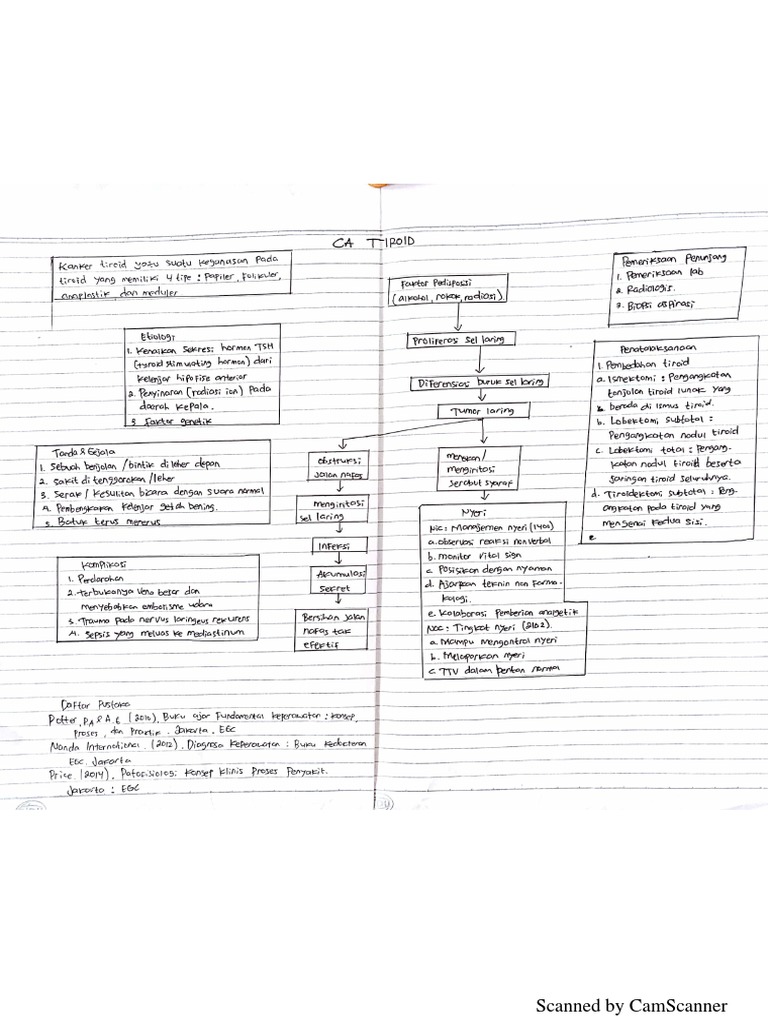 CA TIROID
Kanker tiroid yaitu suatu keganasan pada
tiroid yang memiliki 4 tipe : Papiler, folikuler,
anaplastik dan meduler
Etiologi
1. Kenaikan sekresi hormon TSH
(tyroid stimulating hormon) dari
kelenjar hipofise anterior
2. Penyinaran (radiasi ion) Pada
daerah kepala.
3. Faktor genetik
Tanda & Gejala
1. Sebuah benjolan / bintik di leher depan
2. Sakit di tenggorokan / leher
3. Serak / kesulitan bicara dengan suara normal
4. Pembengkakan kelenjar getah bening.
5. Batuk terus menerus
Komplikasi
1. Perdarahan
2. terbukanya vena besar dan
menyebabkan embolisme udara
3. Trauma pada nervus laringeus rekurens
4. Sepsis yang meluas ke mediastinum
Faktor Pedisposisi
(alkohol, rokok, radiasi)
Proliferasi sel laring
Diferensiasi buruk sel laring
Tumor laring
obstruksi
jalan nafas
mengiritasi
sel laring
Infeksi
Akumulasi
sekret
Bersihan jalan
nafas tak
efektif
menekan /
mengiritasi
serabut syaraf
Nyeri
NIC : Manajemen nyeri (1400)
a. observasi reaksi nonverbal
b. monitor vital sign
c. Posisikan dengan nyaman
d. Ajarkan teknin non farma-
kologi.
e. Kolaborasi Pemberian analgetik
NOC : Tingkat nyeri (2102).
a. Mampu mengontrol nyeri
b. Melaporkan nyeri
c. TTV dalam rentan normal
Pemeriksaan Penunjang
1. Pemeriksaan lab
2. Radiologis.
3. Biopsi aspirasi
Penatalaksanaan
1. Pembedahan tiroid
a. Ismektomi : Pengangkatan
tonjolan tiroid lunak yang
berada di ismus tiroid.
b. Lobektomi subtotal :
Pengangkatan nodul tiroid
c. Lobektomi total : Pengang-
katan nodul tiroid beserta
jaringan tiroid seluruhnya.
d. Tiroidektomi subtotal : Peng-
angkatan pada tiroid yang
mengenai kedua sisi.
e.
Daftar Pustaka
Potter, P.A & A.G (2010). Buku ajar Fundamental keperawatan : konsep,
Proses, dan Praktik. Jakarta. EGC
Nanda International. (2012). Diagnosa Keperawatan : Buku Kedokteran
EGC. Jakarta
Price. (2014). Patofisiologi Konsep Klinis Proses Penyakit.
Jakarta : EGC
Scanned by CamScanner